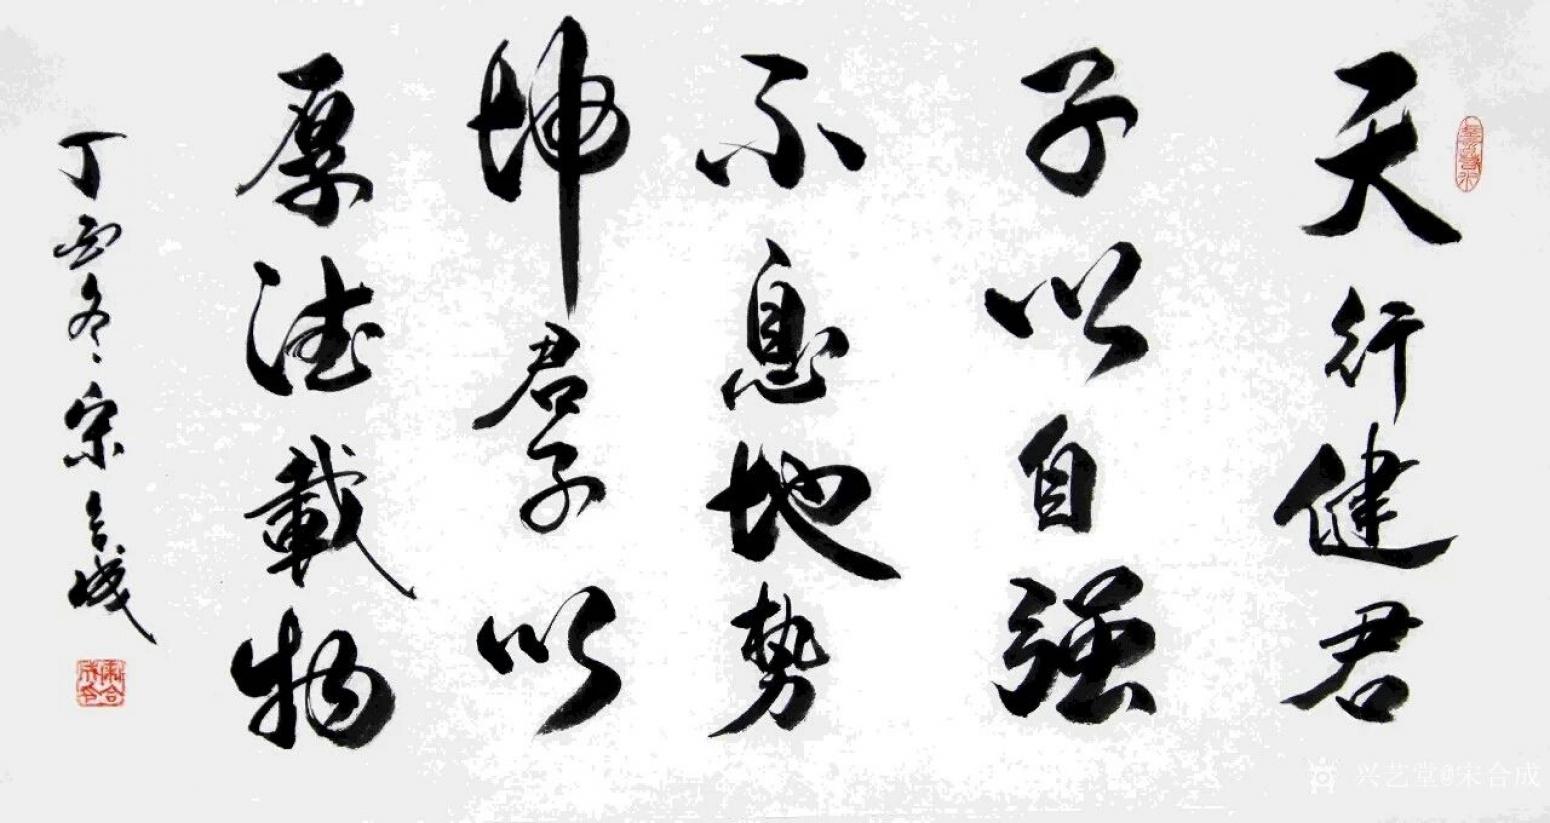 天行健君
子以自强
不息地势
坤君子以
厚德載物
丁酉冬宋合成
兴艺堂@宋合成